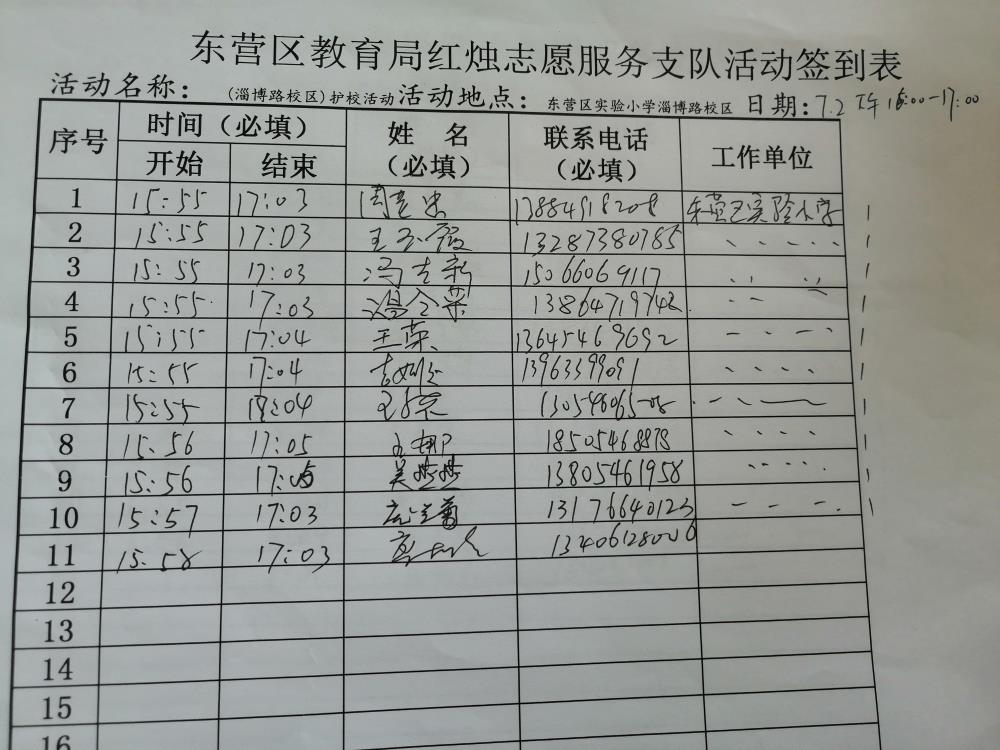 东营区教育局红烛志愿服务支队活动签到表
活动名称：（淄博路校区）护校活动 活动地点：东营区实验小学淄博路校区 日期：7.2 下午 16:00-17:00
序号 时间（必填） 姓 名（必填） 联系电话（必填） 工作单位
开始 结束
1 15:55 17:03 13884918208 东营区实验小学
2 15:55 17:03 13287380785
3 15:55 17:03 冯吉新 15066069117
4 15:55 17:03 13864719742
5 15:55 17:04 王荣 13645469692
6 15:55 17:04 13963399091
7 15:55 18:04
8 15:56 17:05 18505468878
9 15:56 17:05 吴燕燕 13805461958
10 15:57 17:03 13176640123
11 15:58 17:03
12
13
14
15
16